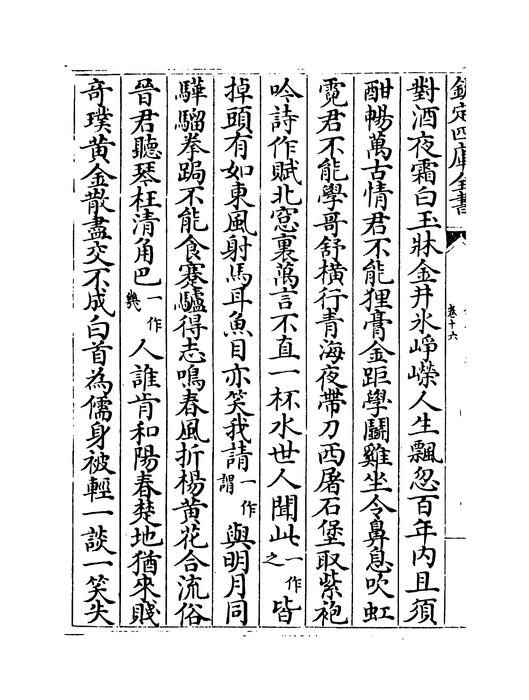 欽定四庫全書
卷十六
對酒夜霜白玉牀金井氷崢嶸人生飄忽百年内且須
酣暢萬古情君不能狸膏金距學鬬雞坐令鼻息吹虹
霓君不能學哥舒横行青海夜帶刀西屠石堡取紫袍
吟詩作賦北窓裏萬言不直一杯水世人聞此一作之皆
掉頭有如東風射馬耳魚目亦笑我請一作謂與明月同
驊騮拳跼不能食蹇驢得志鳴春風折楊黄花合流俗
晉君聽琴枉清角巴一作幾人誰肯和陽春楚地猶來賤
竒璞黄金散盡交不成白首為儒身被輕一談一笑失